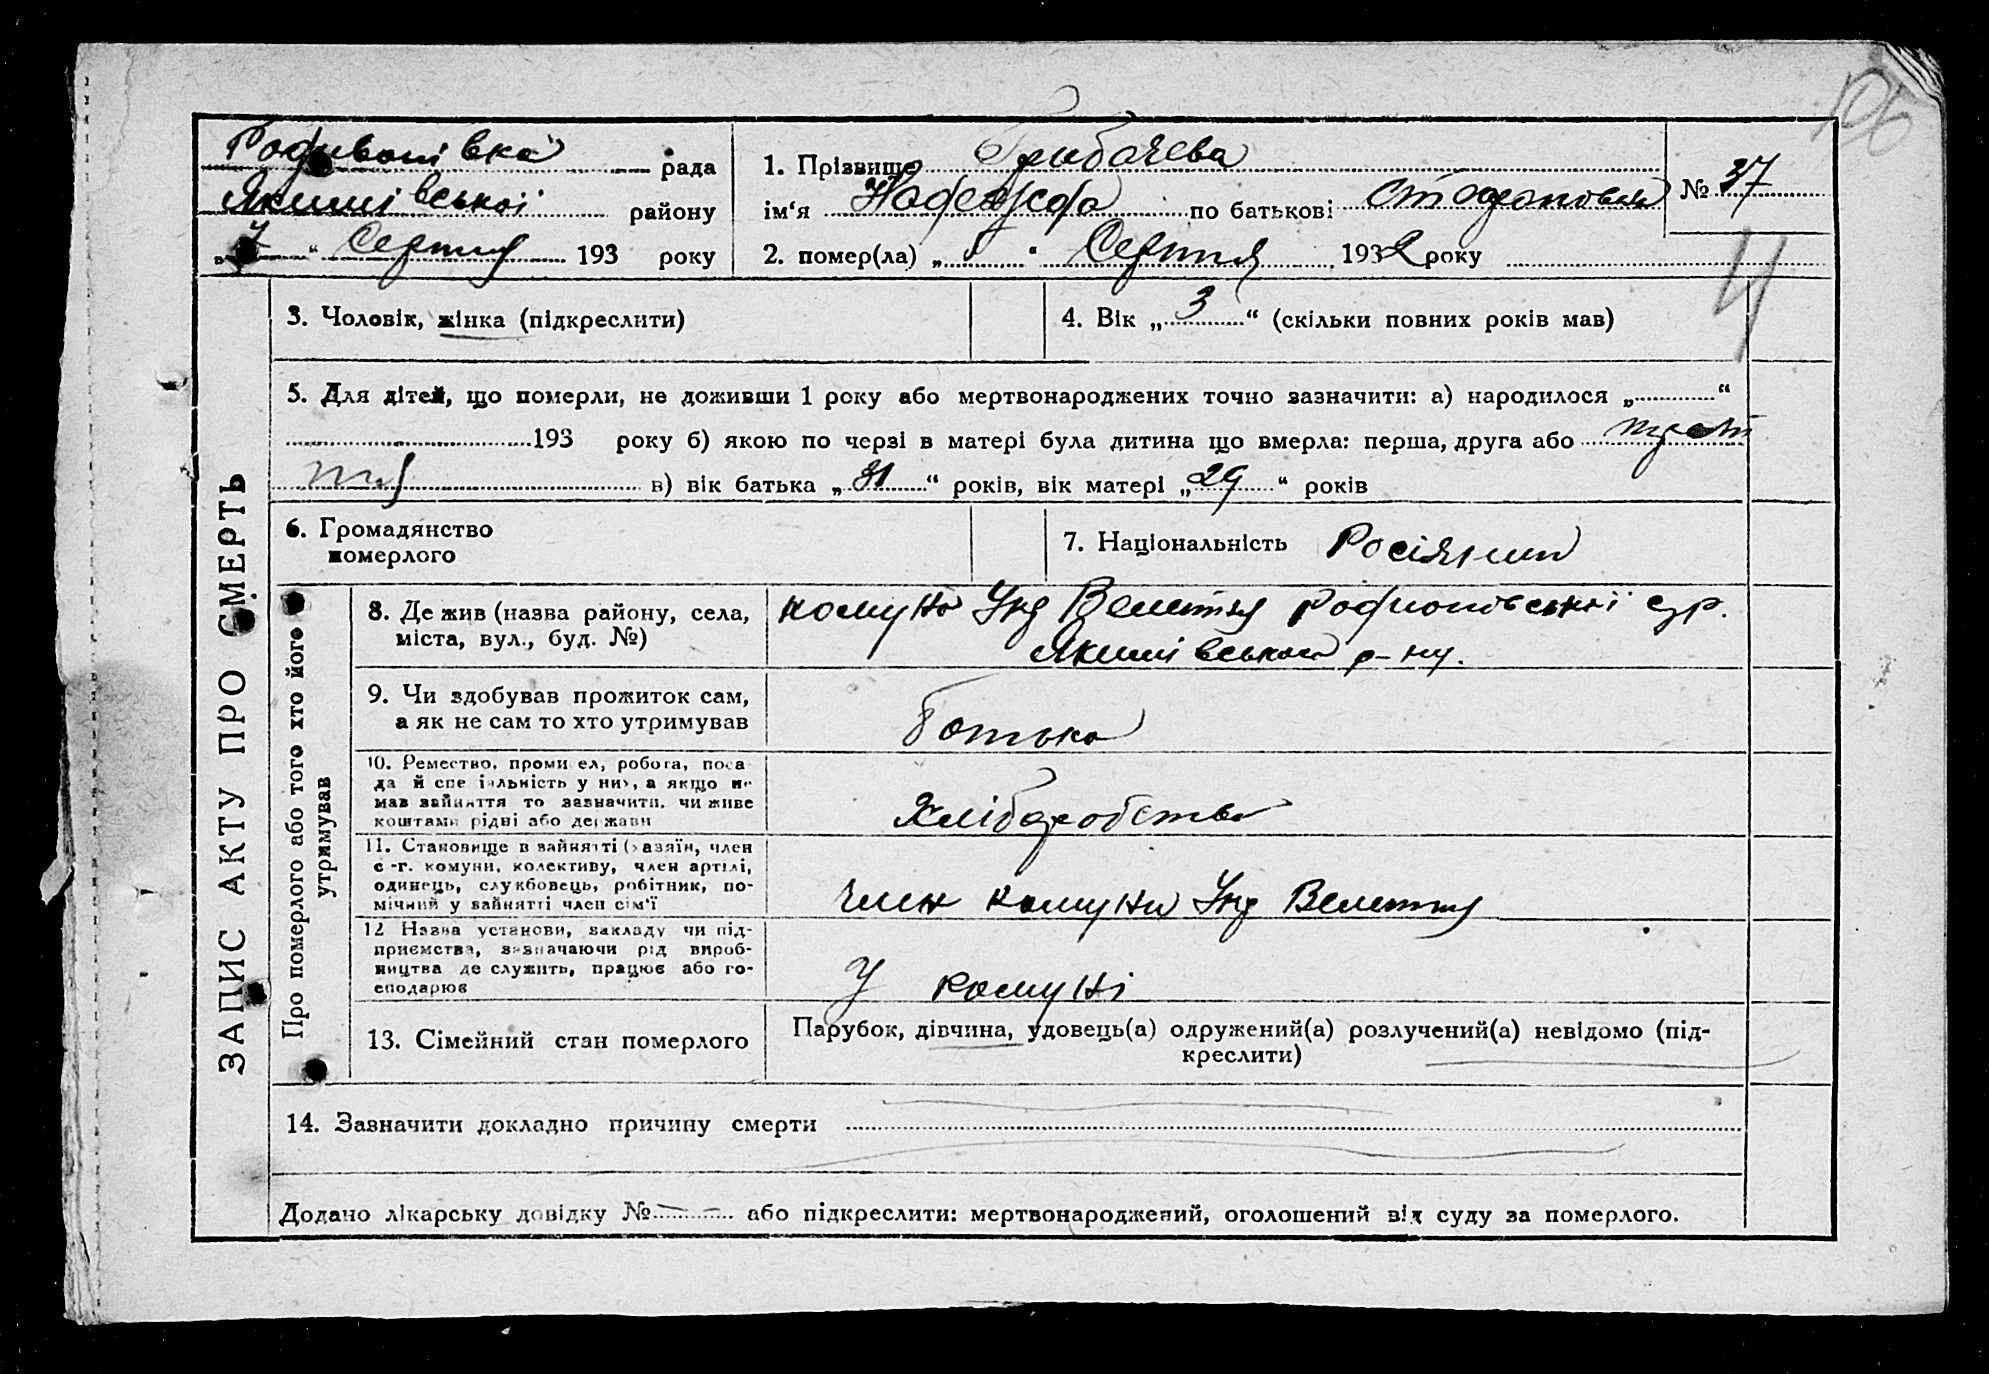 106
Родивонівка рада
Якимівської району
„7“ Серпня 193 року
1. Прізвище Грибачева
ім‘я Надежда по батькові № 37
2. помер(ла) „ “ Серпня 1932 року
ЗАПИС АКТУ ПРО СМЕРТЬ
3. Чоловік, жінка (підкреслити)
4. Вік „3“ (скільки повних років мав)
5. Для дітей, що померли, не доживши 1 року або мертвонароджених точно зазначити: а) народилося „ “
193 року б) якою по черзі в матері була дитина що вмерла: перша, друга або трети
тя в) вік батька „31“ років, вік матері „29“ років
6. Громадянство
померлого
7. Національність Росіянин
Про померлого або того хто його
утримував
8. Де жив (назва району, села,
міста, вул., буд. №)
комуна Родионовської с/р.
Якимівського р-ну.
9. Чи здобував прожиток сам,
а як не сам то хто утримував
Батько
10. Ремество, промисел, робота, поса-
да й спеціяльність у них, а якщо не
мав зайняття то зазначити, чи живе
коштами рідні або держави
Хліборобство
11. Становище в зайнятті (хазяїн, член
с.-г. комуни, колективу, член артілі,
одинець, службовець, робітник, по-
мічний у зайнятті член сім‘ї
член комуни
12 Назва установи, закладу чи під-
приємства, зазначаючи рід вироб-
ництва де служить, працює або го-
сподарює
У комуні
13. Сімейний стан померлого
Парубок, дівчина, удовець(а) одружений(а) розлучений(а) невідомо (під-
креслити)
14. Зазначити докладно причину смерти
Додано лікарську довідку № — або підкреслити: мертвонароджений, оголошений від суду за померлого.